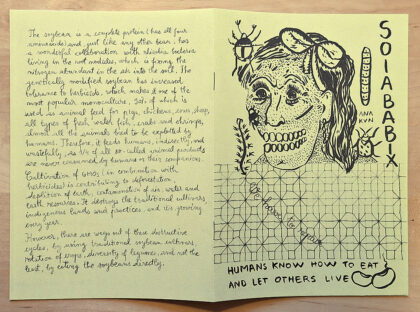 The soybean is a complete protein (has all four
aminoacids) and just like any other bean, has
a wonderful collaboration with rhizobia bacteria
living in the root nodules, which is fixing the
nitrogen abundant in the air into the soil. The
genetically modified soybean has increased
tolerance to herbicids, which makes it one of the
most popular monocultures. 77% of which is
used as animal feed for pigs, chickens, cows, sheep,
all types of fowl, water fish, crabs and shrimps,
almost all the animals bred to be exploited by
humans. Therefore, it feeds humans, indirectly, and
wastefully, as of all so-called animal products
are never consumed by humans or their companions.
Cultivation of GMOs (in combination with
herbicides) is contributing to deforestation,
depletion of earth, contamination of air, water and
earth resources. It destroys the traditional cultivars
indigenous lands and practices, and it's growing
every year.
However, there are ways out of these destructive
cycles, by using traditional soybean cultivars
rotation of crops, diversity of legumes, and not the
least, by eating the soybeans directly.
SOIABABIX
ANA
KUN
HUMANS KNOW HOW TO EAT
AND LET OTHERS LIVE